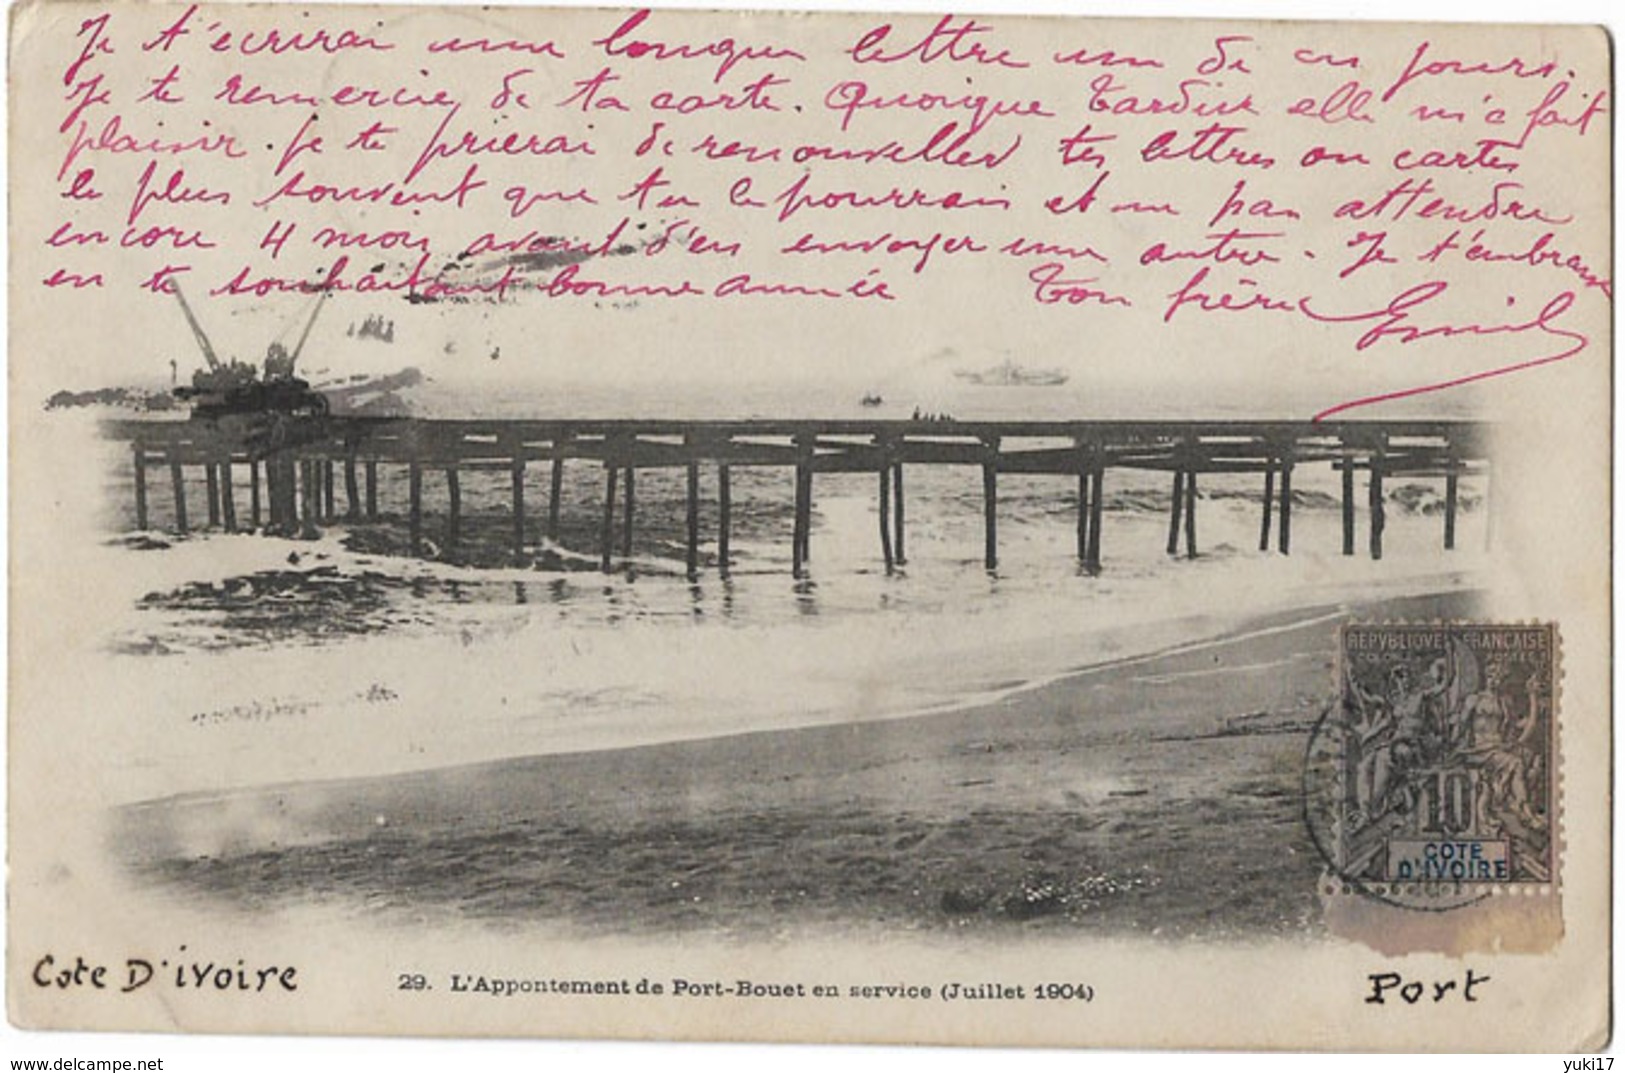 Je t'écrirai une longue lettre un de ces jours.
Je te remercie de ta carte. Quoique tardive elle m'a fait
plaisir. Je te prierai de renouveller tes lettres ou cartes
le plus souvent que tu le pourrais et ne pas attendre
encore 4 mois avant d'en envoyer une autre. Je t'embrasse
en te souhaitant bonne année Ton frère Emile
REPVBLIQVE FRANÇAISE
COLONIES POSTES
10
COTE
D'IVOIRE
Cote D'ivoire
29. L'Appontement de Port-Bouet en service (Juillet 1904)
Port
delcampe.net
yuki17